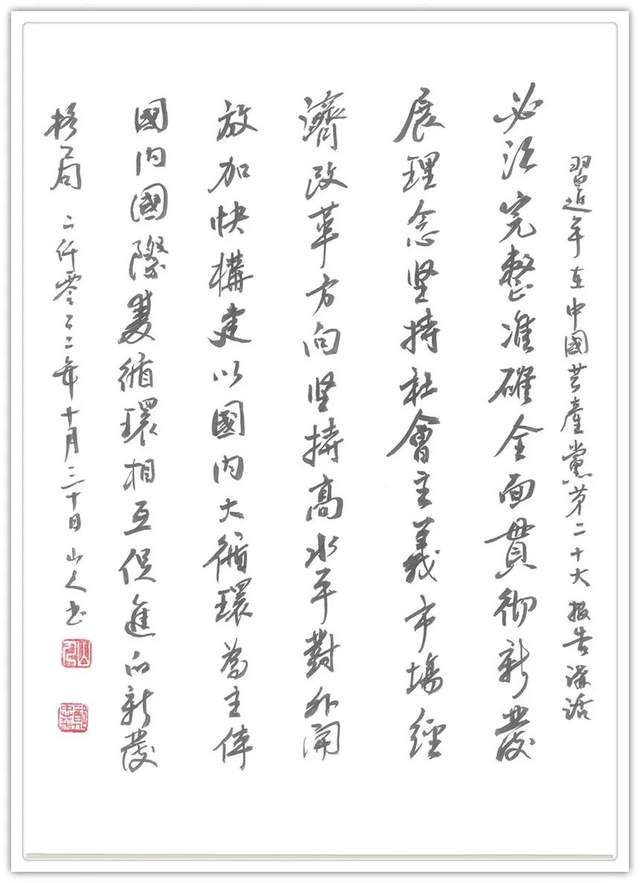 習近平在中國共產黨第二十大报告講話
必須完整准確全面貫彻新發
展理念坚持社會主義市場經
濟改革方向坚持高水平對外開
放加快構建以國内大循環為主体
國内國際雙循環相互促進的新發
格局 二仟零二二年十月三十日山人书